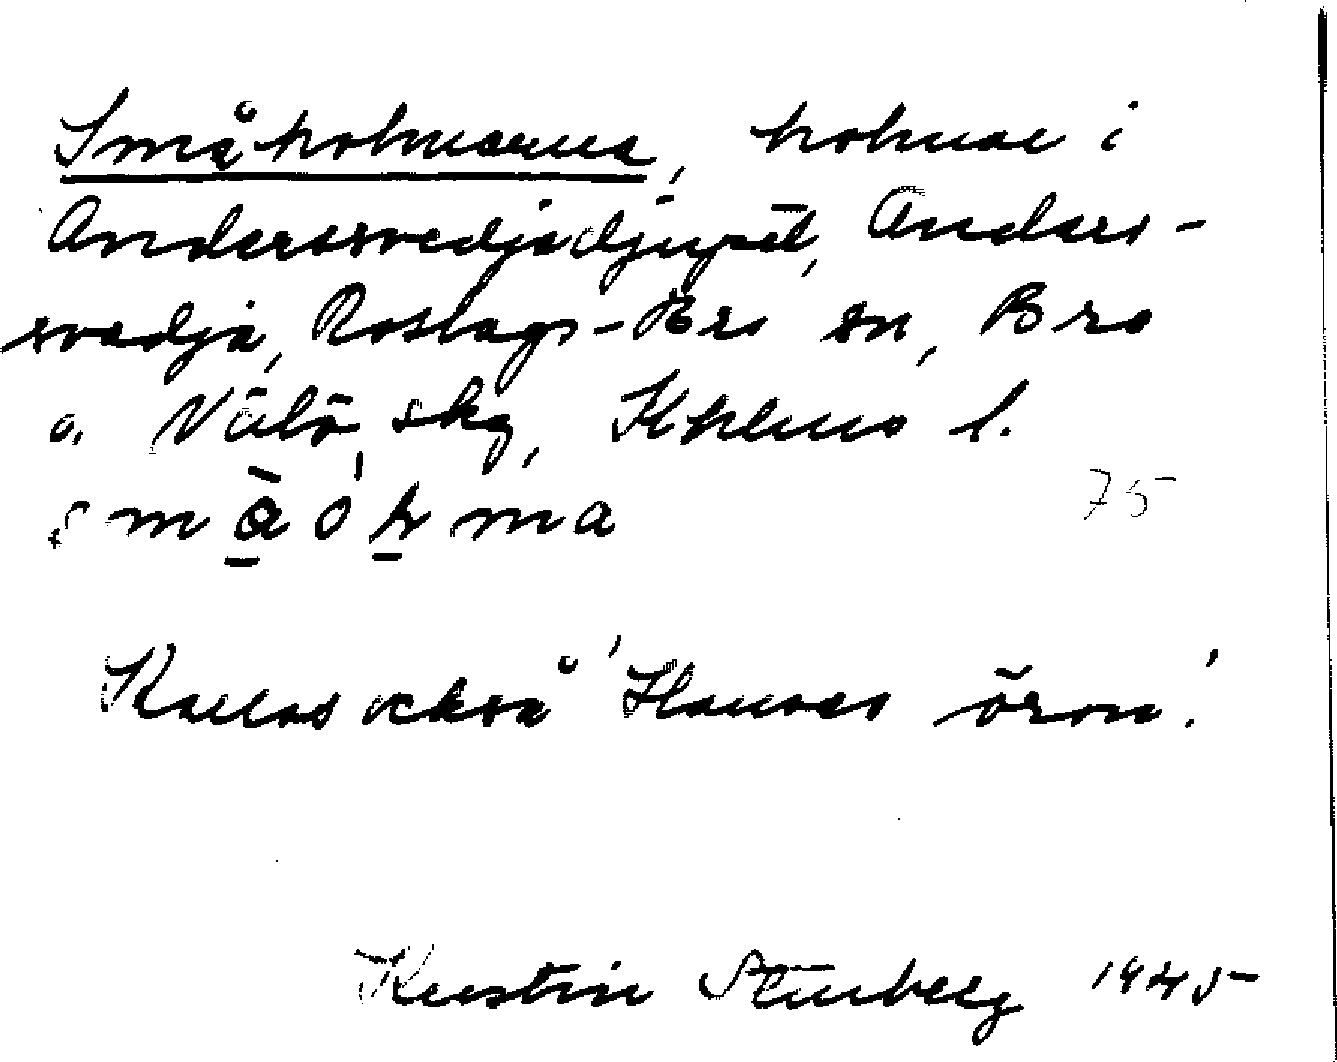 Småholmarna, holmar i
Andersvedjadjupet, Anders-
svedja, Roslags-Bro sn, Bro
o. Vätö skg, Sthlms l.
75
Kallas också 'Hanses öron'.
Kerstin Stenberg 1945